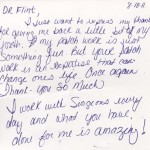 Dr Flint,
I just want to express my thanks
for giving me back a little bit of my
youth. My work is just
something fun But your
work is an that can
change ones life. Once again
Thank-you so much
I work with Surgeons every
day and what you have
done for me is amazing!